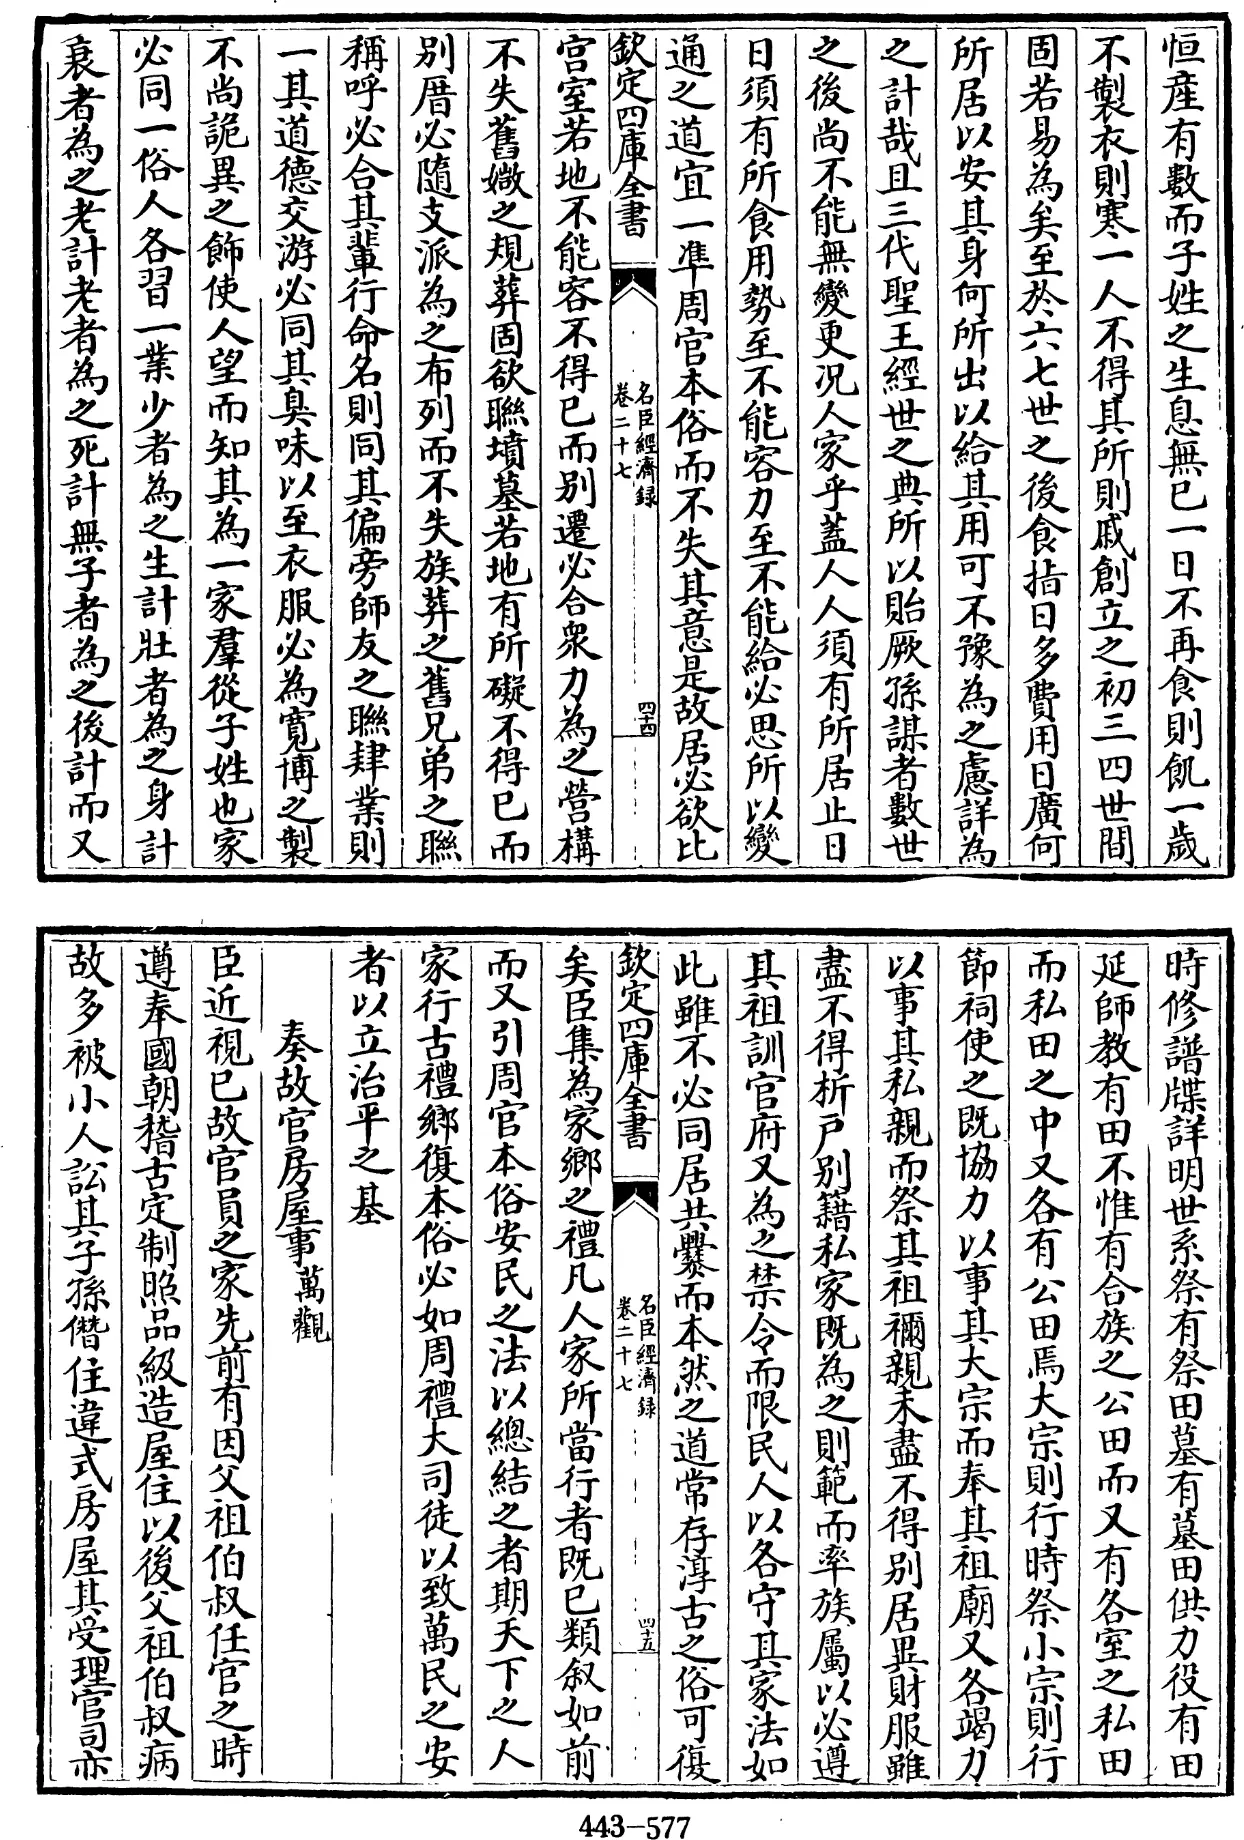 恒産有數而子姓之生息無已一日不再食則飢一歲
不製衣則寒一人不得其所則戚創立之初三四世間
固若易為矣至於六七世之後食指日多費用日廣何
所居以安其身何所出以給其用可不豫為之慮詳為
之計哉且三代聖王經世之典所以貽厥孫謀者數世
之後尚不能無變更况人家乎蓋人人須有所居止日
日須有所食用勢至不能容力至不能給必思所以變
通之道宜一準周官本俗而不失其意是故居必欲比
欽定四庫全書
名臣經濟録
卷二十七
四十四
宫室若地不能容不得已而别遷必合衆力為之營構
不失舊媺之規葬固欲聯墳墓若地有所礙不得已而
别厝必隨支派為之布列而不失族葬之舊兄弟之聯
稱呼必合其輩行命名則同其偏旁師友之聯肄業則
一其道德交游必同其臭味以至衣服必為寛博之製
不尚詭異之飾使人望而知其為一家羣從子姓也家
必同一俗人各習一業少者為之生計壯者為之身計
衰者為之老計老者為之死計無子者為之後計而又
時修譜牒詳明世系祭有祭田墓有墓田供力役有田
延師教有田不惟有合族之公田而又有各室之私田
而私田之中又各有公田焉大宗則行時祭小宗則行
節祠使之既協力以事其大宗而奉其祖廟又各竭力
以事其私親而祭其祖禰親未盡不得别居異財服雖
盡不得析戸别籍私家既為之則範而率族屬以必遵
其祖訓官府又為之禁令而限民人以各守其家法如
此雖不必同居共爨而本然之道常存淳古之俗可復
欽定四庫全書
名臣經濟録
卷二十七
四十五
矣臣集為家鄉之禮凡人家所當行者既已類叙如前
而又引周官本俗安民之法以總結之者期天下之人
家行古禮鄉復本俗必如周禮大司徒以致萬民之安
者以立治平之基
奏故官房屋事萬觀
臣近視已故官員之家先前有因父祖伯叔任官之時
遵奉國朝稽古定制照品級造屋住以後父祖伯叔病
故多被小人訟其子孫僭住違式房屋其受理官司亦
443-577